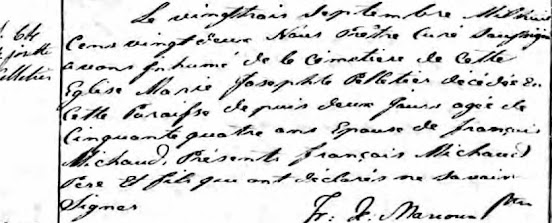 Le vingttrois Septembre Mil huit
Cens vingt deux Nous Prêtre Curé Soussigné
S. 64
avons inhumé de le cemetière de Cette
Eglise Marie Josephte Pelletier décédée en
Pelletier
Cette Paroisse depuis deux Jours agée de
Cinquante quatre ans Epouse de françois
Michaud, Présents françois Michaud
Pere Et fils qui ont déclarés ne savoir
Signer